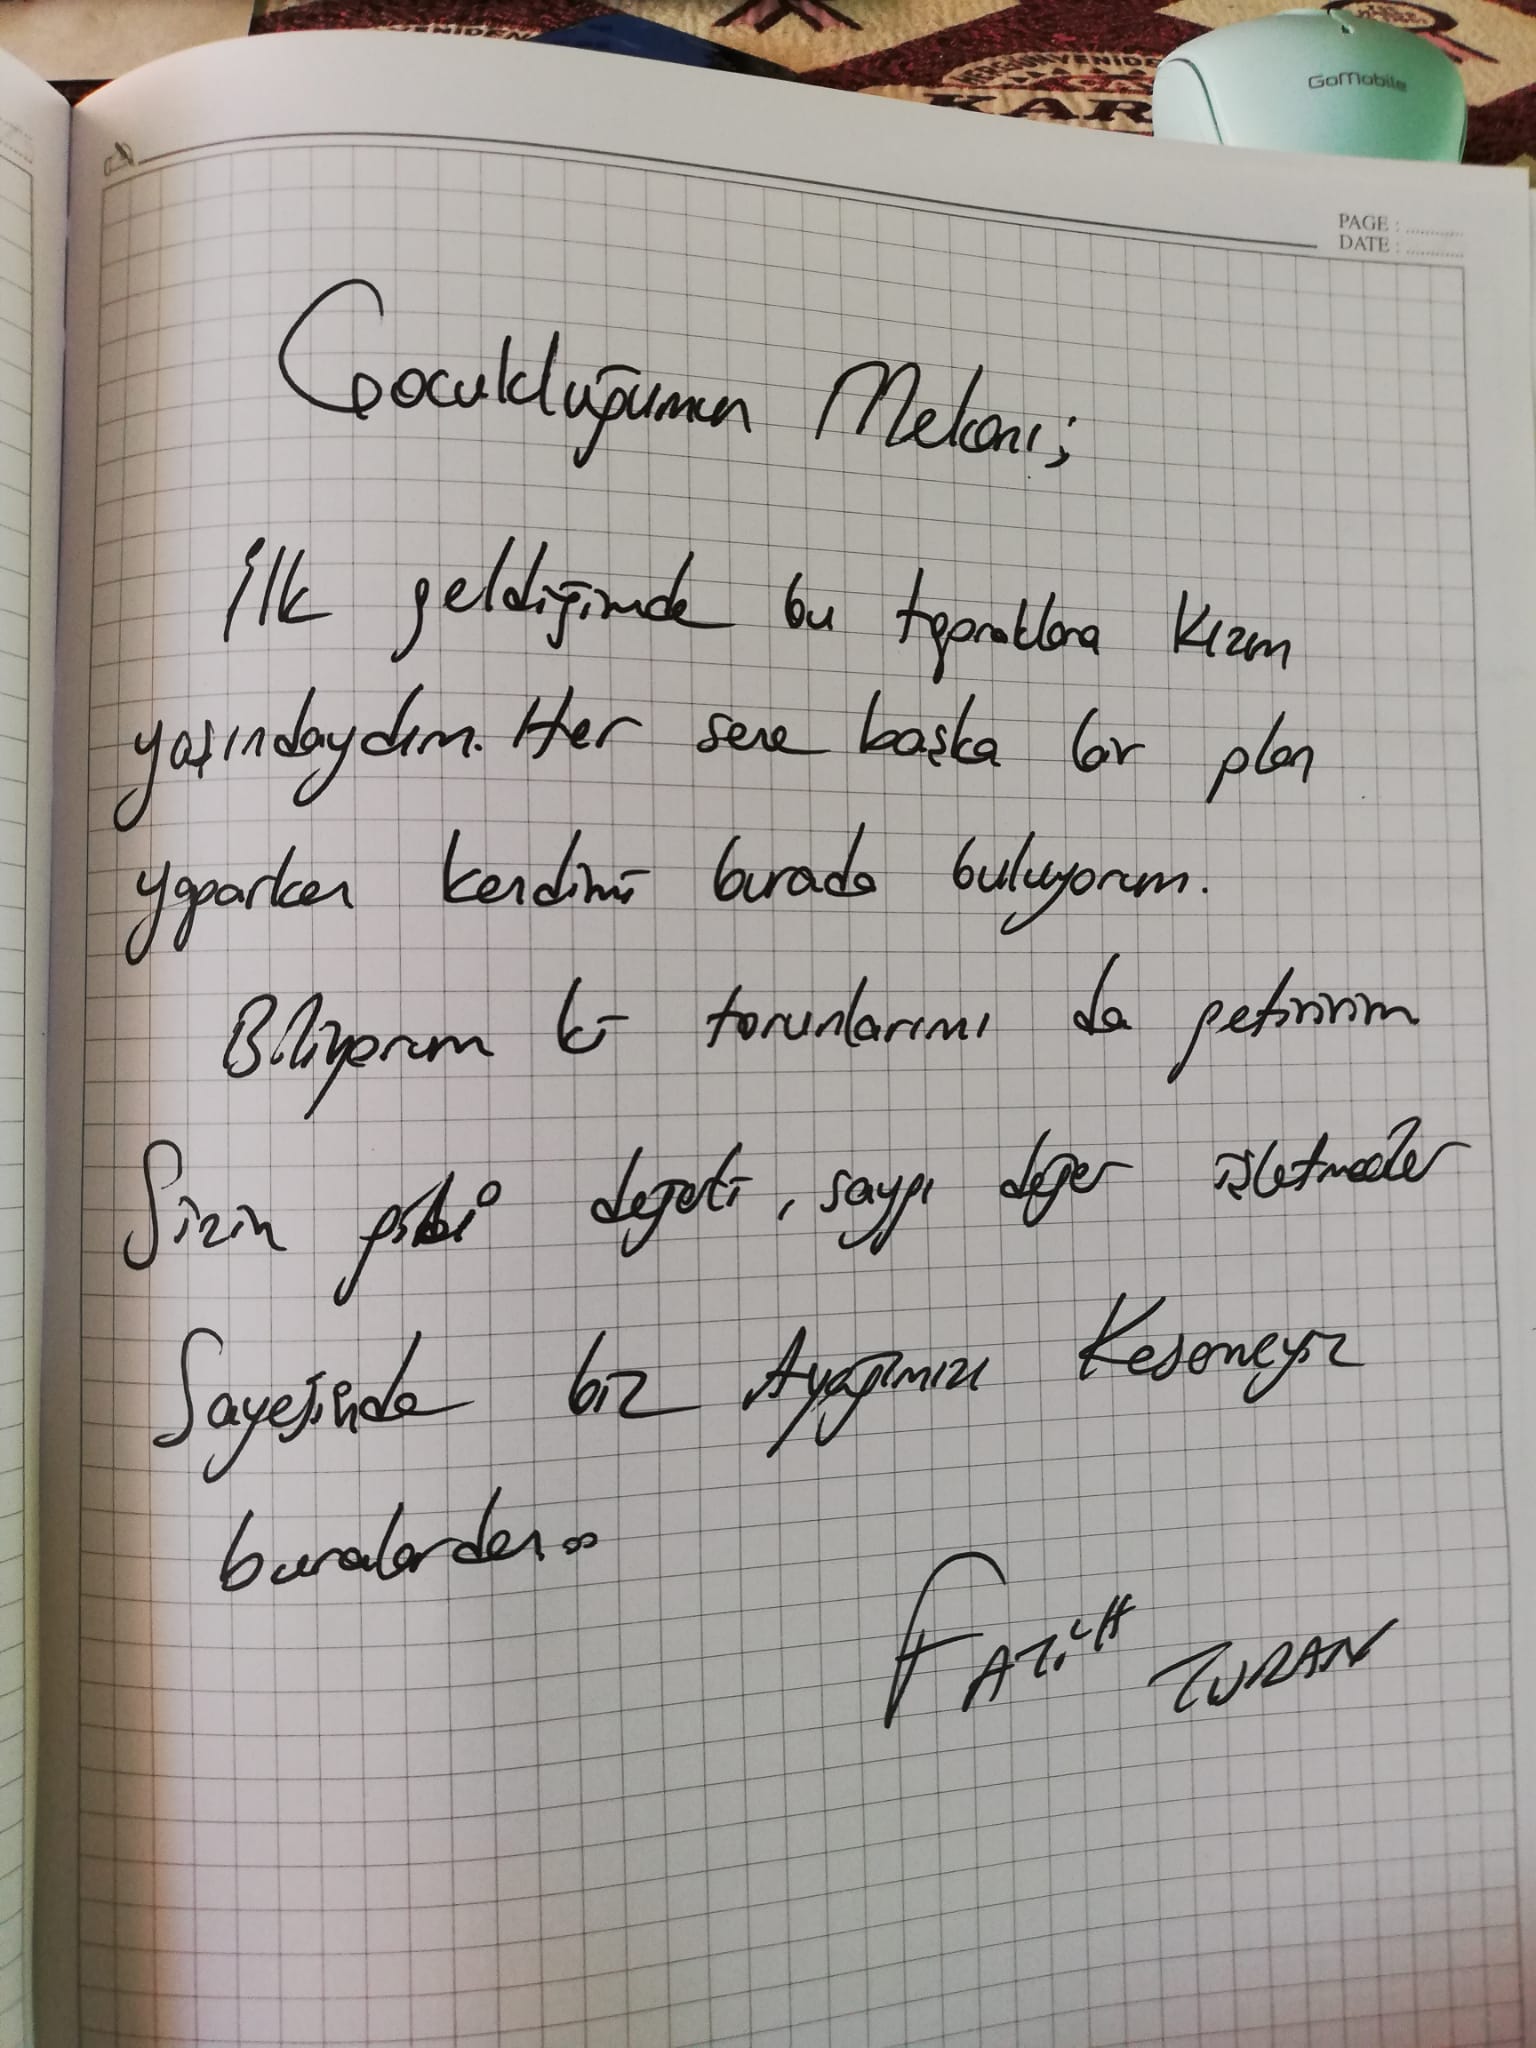 YENİDEN
HERGÜN YENİDEN
KAR
GoMobile
PAGE : ..........
DATE : ..........
Çocukluğumun Mekanı;
İlk geldiğimde bu topraklara kızım
yaşındaydım. Her sene başka bir plan
yaparken kendimi burada buluyorum.
Biliyorum ki torunlarımı da getiririm
Sizin gibi değerli, saygı değer işletmeciler
Sayesinde biz Ayağımızı Kesemeyiz
buralardan..
FATİH TURAN